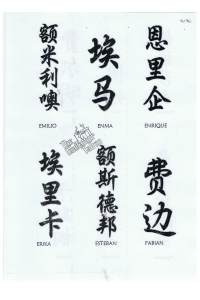 额米利噢
埃马
恩里企
EMILIO
ENMA
ENRIQUE
埃里卡
额斯德邦
费边
ERIKA
ESTEBAN
FABIAN